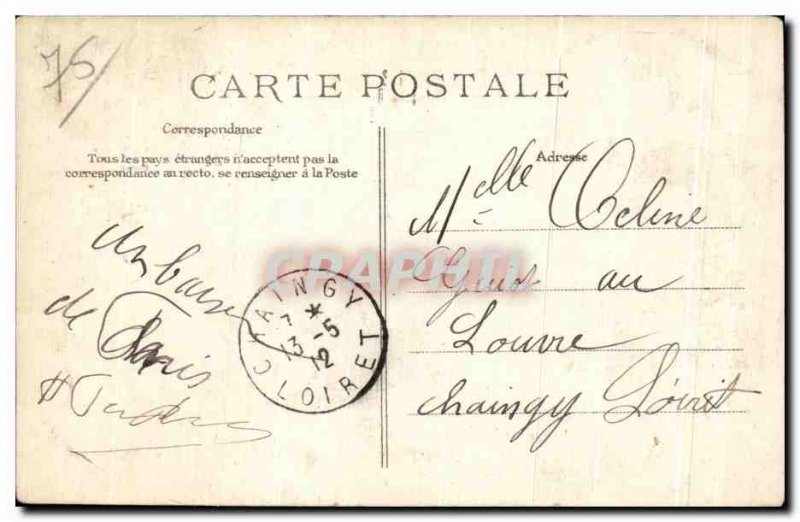 75
CARTE POSTALE
Correspondance
Tous les pays étrangers n'acceptent pas la
correspondance au recto, se renseigner à la Poste
un baiser
de Paris
Adresse
Melle Celine
au
Louvre
chaingy Loiret
CHAINGY
7 *
13 -5
12
LOIRET
CPAPHIL